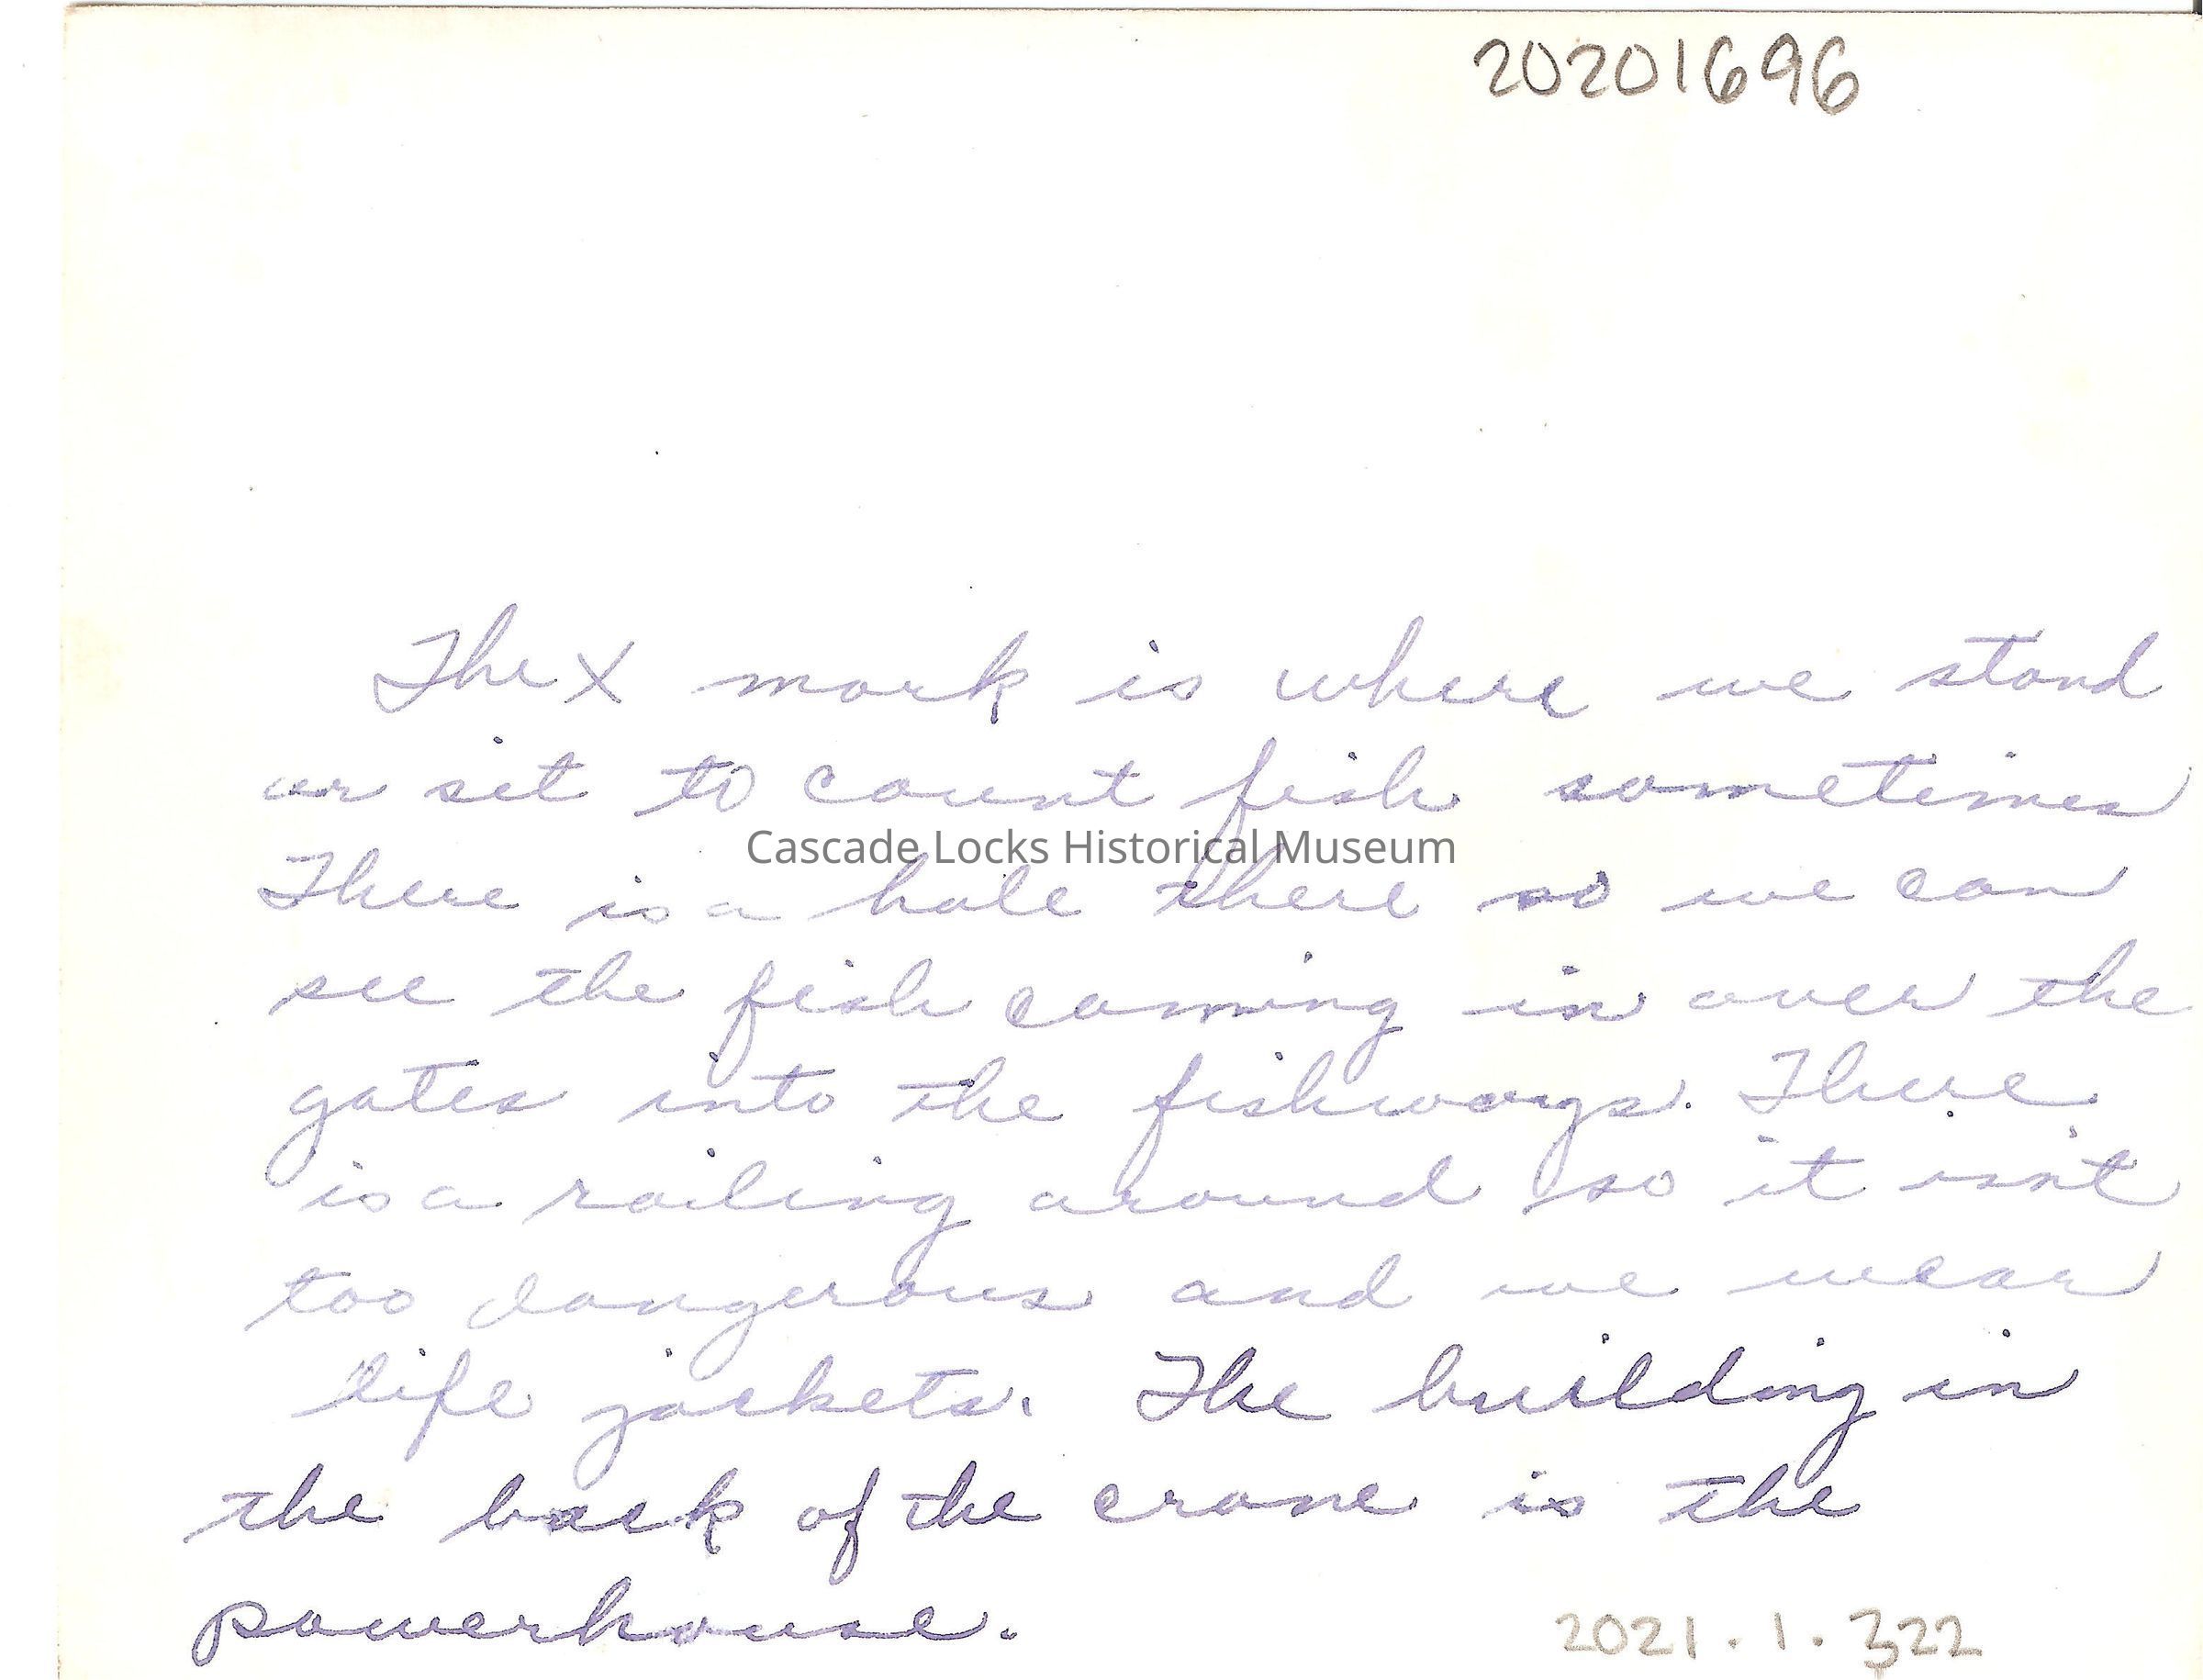 20201696
The X mark is where we stand
or sit to count fish sometimes
Cascade Locks Historical Museum
There is a hole there so we can
see the fish coming in over the
gates into the fishways. There
is a railing around so it isn't
too dangerous and we wear
life jackets. The building in
the back of the crane is the
powerhouse.
2021.1.322